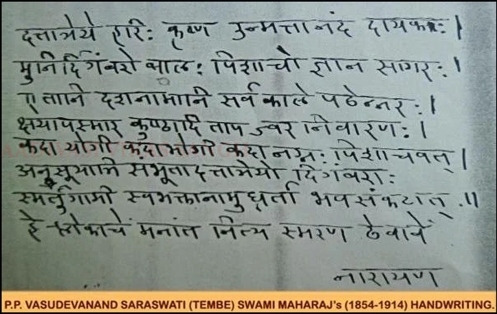 दत्तात्रेये हरिः कृष्ण उन्मत्तानंद दायकः।
मुनिर्दिगंबरो बालः पिशाचो ज्ञान सागरः।
ऐतानि दशनामानि सर्वकाले पठेन्नरः।
क्षयापस्मार कुष्ठादि ताप ज्वर निवारणः।
कदा योगी कदाभोगी कदा नग्नः पिशाचवत्।
अनुसूयामि संभूतादत्तात्रेयो दिगंबराः
स्मर्तुगामी स्वभक्तानामुध्धर्ता भवसंकटात्॥
हे श्लोकाचें मनांत नित्य स्मरण ठेवावें
नारायण
P.P. VASUDEVANAND SARASWATI (TEMBE) SWAMI MAHARAJ's (1854-1914) HANDWRITING.